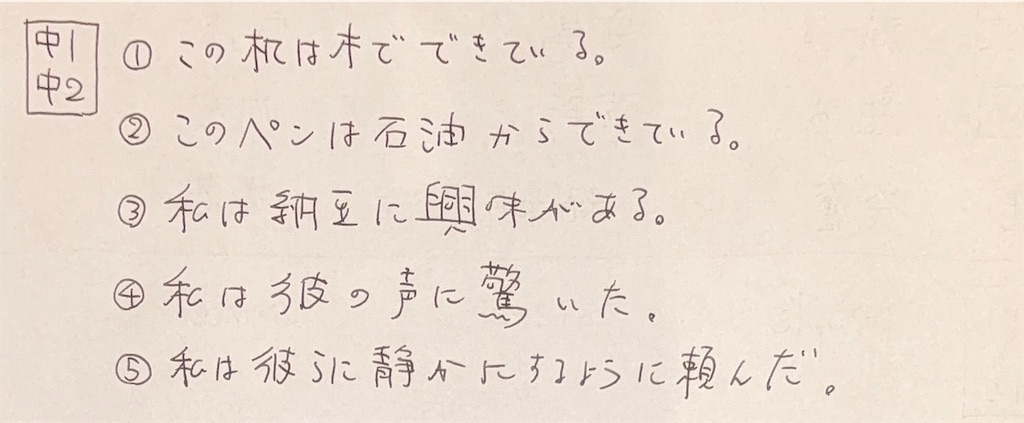 中1
中2
① この机は木でできている。
② このペンは石油からできている。
③ 私は納豆に興味がある。
④ 私は彼の声に驚いた。
⑤ 私は彼らに静かにするように頼んだ。